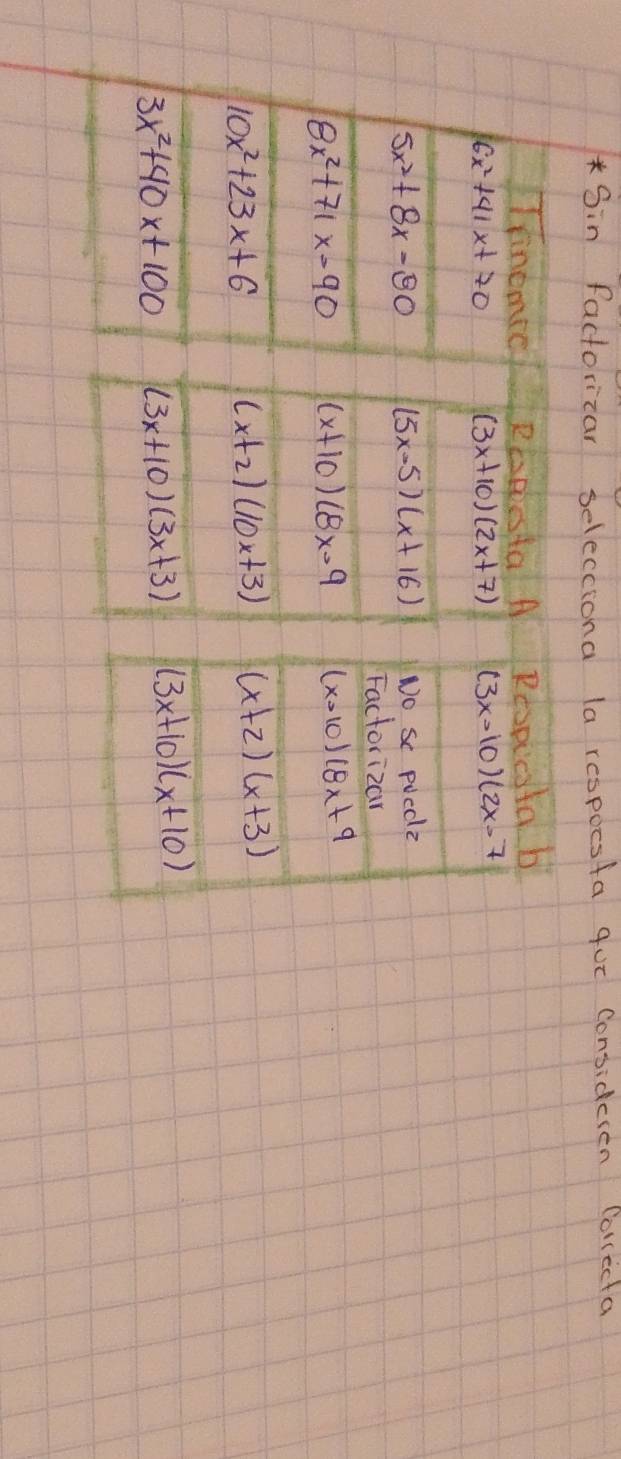 * Sin factorizar selecciona la respuesta que consideren correcta
Trinomio Respuesta A Respuesta b
6x²+41x+70 (3x+10)(2x+7) (3x-10)(2x-7
5x²+8x-80 (5x-5)(x+16) No se puede
Factorizar
8x²+71x-90 (x+10)(8x-9 (x-10)(8x+9
10x²+23x+6 (x+2)(10x+3) (x+2)(x+3)
3x²+40x+100 (3x+10)(3x+3) (3x+10)(x+10)